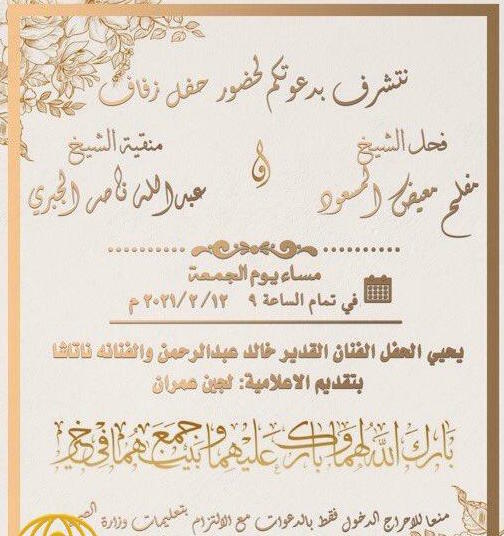 نتشرف بدعوتكم لحضور حفل زفاف
فحل الشيخ
مفلح معيض المسعود
و
منقية الشيخ
عبدالله ناصر الجبري
مساء يوم الجمعة
في تمام الساعة ٩ ٢٠٢١/٢/١٢ م
يحيي الحفل الفنان القدير خالد عبدالرحمن والفنانه ناتاشا
بتقديم الاعلامية: لجين عمران
بارك الله لهما وبارك عليهما وجمع بينهما في خير
منعا للاحراج الدخول فقط بالدعوات مع الالتزام بتعليمات وزارة